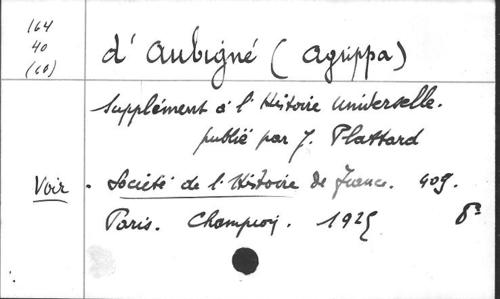 164
40
(60)
d'Aubigné (Agrippa)
Supplément à l'Histoire Universelle.
publié par J. Plattard
Voir. Société de l'Histoire de France. 409.
Paris. Champion. 1925 8º